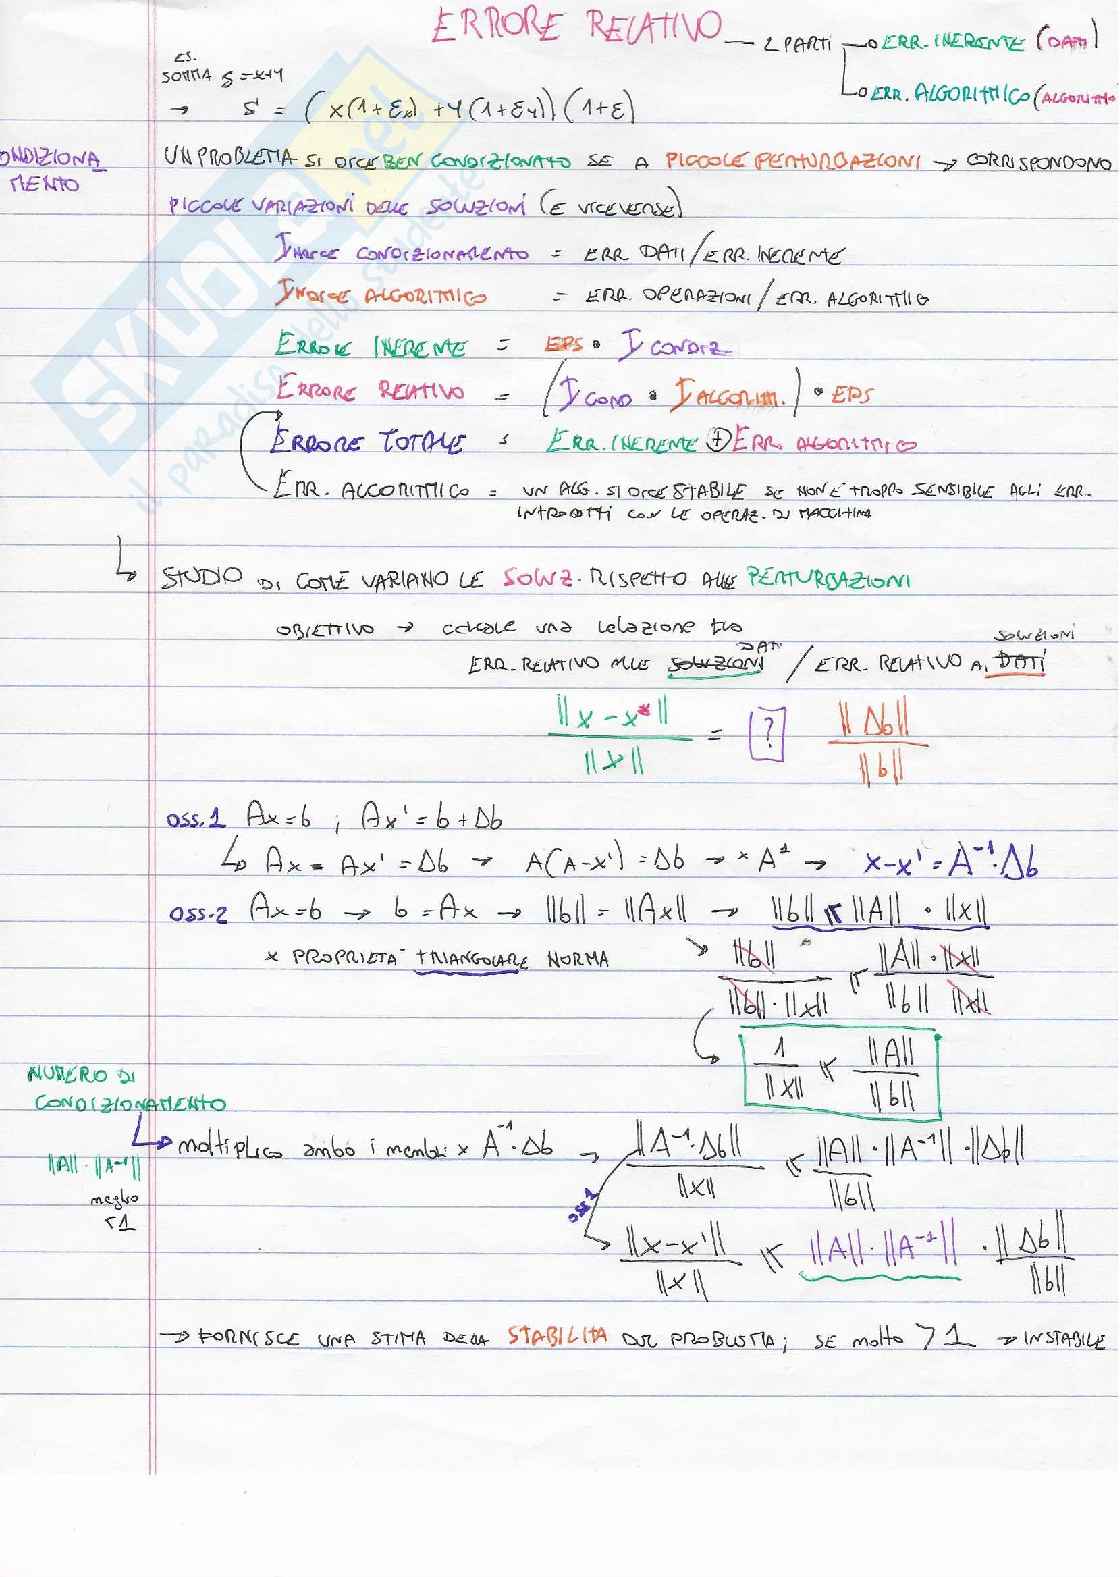 ERRORE RELATIVO — 2 PARTI → ERR. INERENTE (DATI)
→ ERR. ALGORITMICO (ALGORITMO
ES.
SOMMA S = x+y
→ S' = (x(1+εx) + y(1+εy))(1+ε)
ONDIZIONA
MENTO
UN PROBLEMA SI DICE BEN CONDIZIONATO SE A PICCOLE PERTURBAZIONI → CORRISPONDONO
PICCOLE VARIAZIONI DELLE SOLUZIONI (E VICEVERSE)
INDICE CONDIZIONAMENTO = ERR. DATI / ERR. INERENTE
INDICE ALGORITMICO = ERR. OPERAZIONI / ERR. ALGORITMICO
ERRORE INERENTE = EPS • I CONDIZ
ERRORE RELATIVO = (I COND • I ALGORITM.) • EPS
ERRORE TOTALE = ERR. INERENTE + ERR. ALGORITMICO
ERR. ALGORITMICO = UN ALG. SI DICE STABILE SE NON È TROPPO SENSIBILE AGLI ERR.
INTRODOTTI CON LE OPERAZ. DI MACCHINA
→ STUDIO DI COME VARIANO LE SOLUZ. RISPETTO ALLE PERTURBAZIONI
OBIETTIVO → CERCARE UNA RELAZIONE TRA
DATI SOLUZIONI
ERR. RELATIVO ALLE SOLUZIONI / ERR. RELATIVO A. DATI
||x - x*|| / ||x|| = [?] ||Δb|| / ||b||
OSS.1 Ax=b ; Ax' = b + Δb
↳ Ax = Ax' = Δb → A(A-x') = Δb → × A⁻¹ → x-x' = A⁻¹·Δb
OSS.2 Ax=b → b = Ax → ||b|| = ||Ax|| → ||b|| ≤ ||A|| • ||x||
× PROPRIETÀ TRIANGOLARE NORMA
||b|| / ||b||·||x|| ≤ ||A||·||x|| / ||b|| ||x||
1 / ||x|| ≤ ||A|| / ||b||
NUMERO DI
CONDIZIONAMENTO
||A||·||A⁻¹||
meglio
≤1
→ moltiplico ambo i membri × A⁻¹·Δb → ||A⁻¹·Δb|| / ||x|| ≤ ||A||·||A⁻¹||·||Δb|| / ||b||
OSS 1
→ ||x-x'|| / ||x|| ≤ ||A||·||A⁻¹|| · ||Δb|| / ||b||
→ FORNISCE UNA STIMA DELLA STABILITÀ DEL PROBLEMA ; SE molto > 1 → INSTABILE
SKUOLA.net
il paradiso dello studente